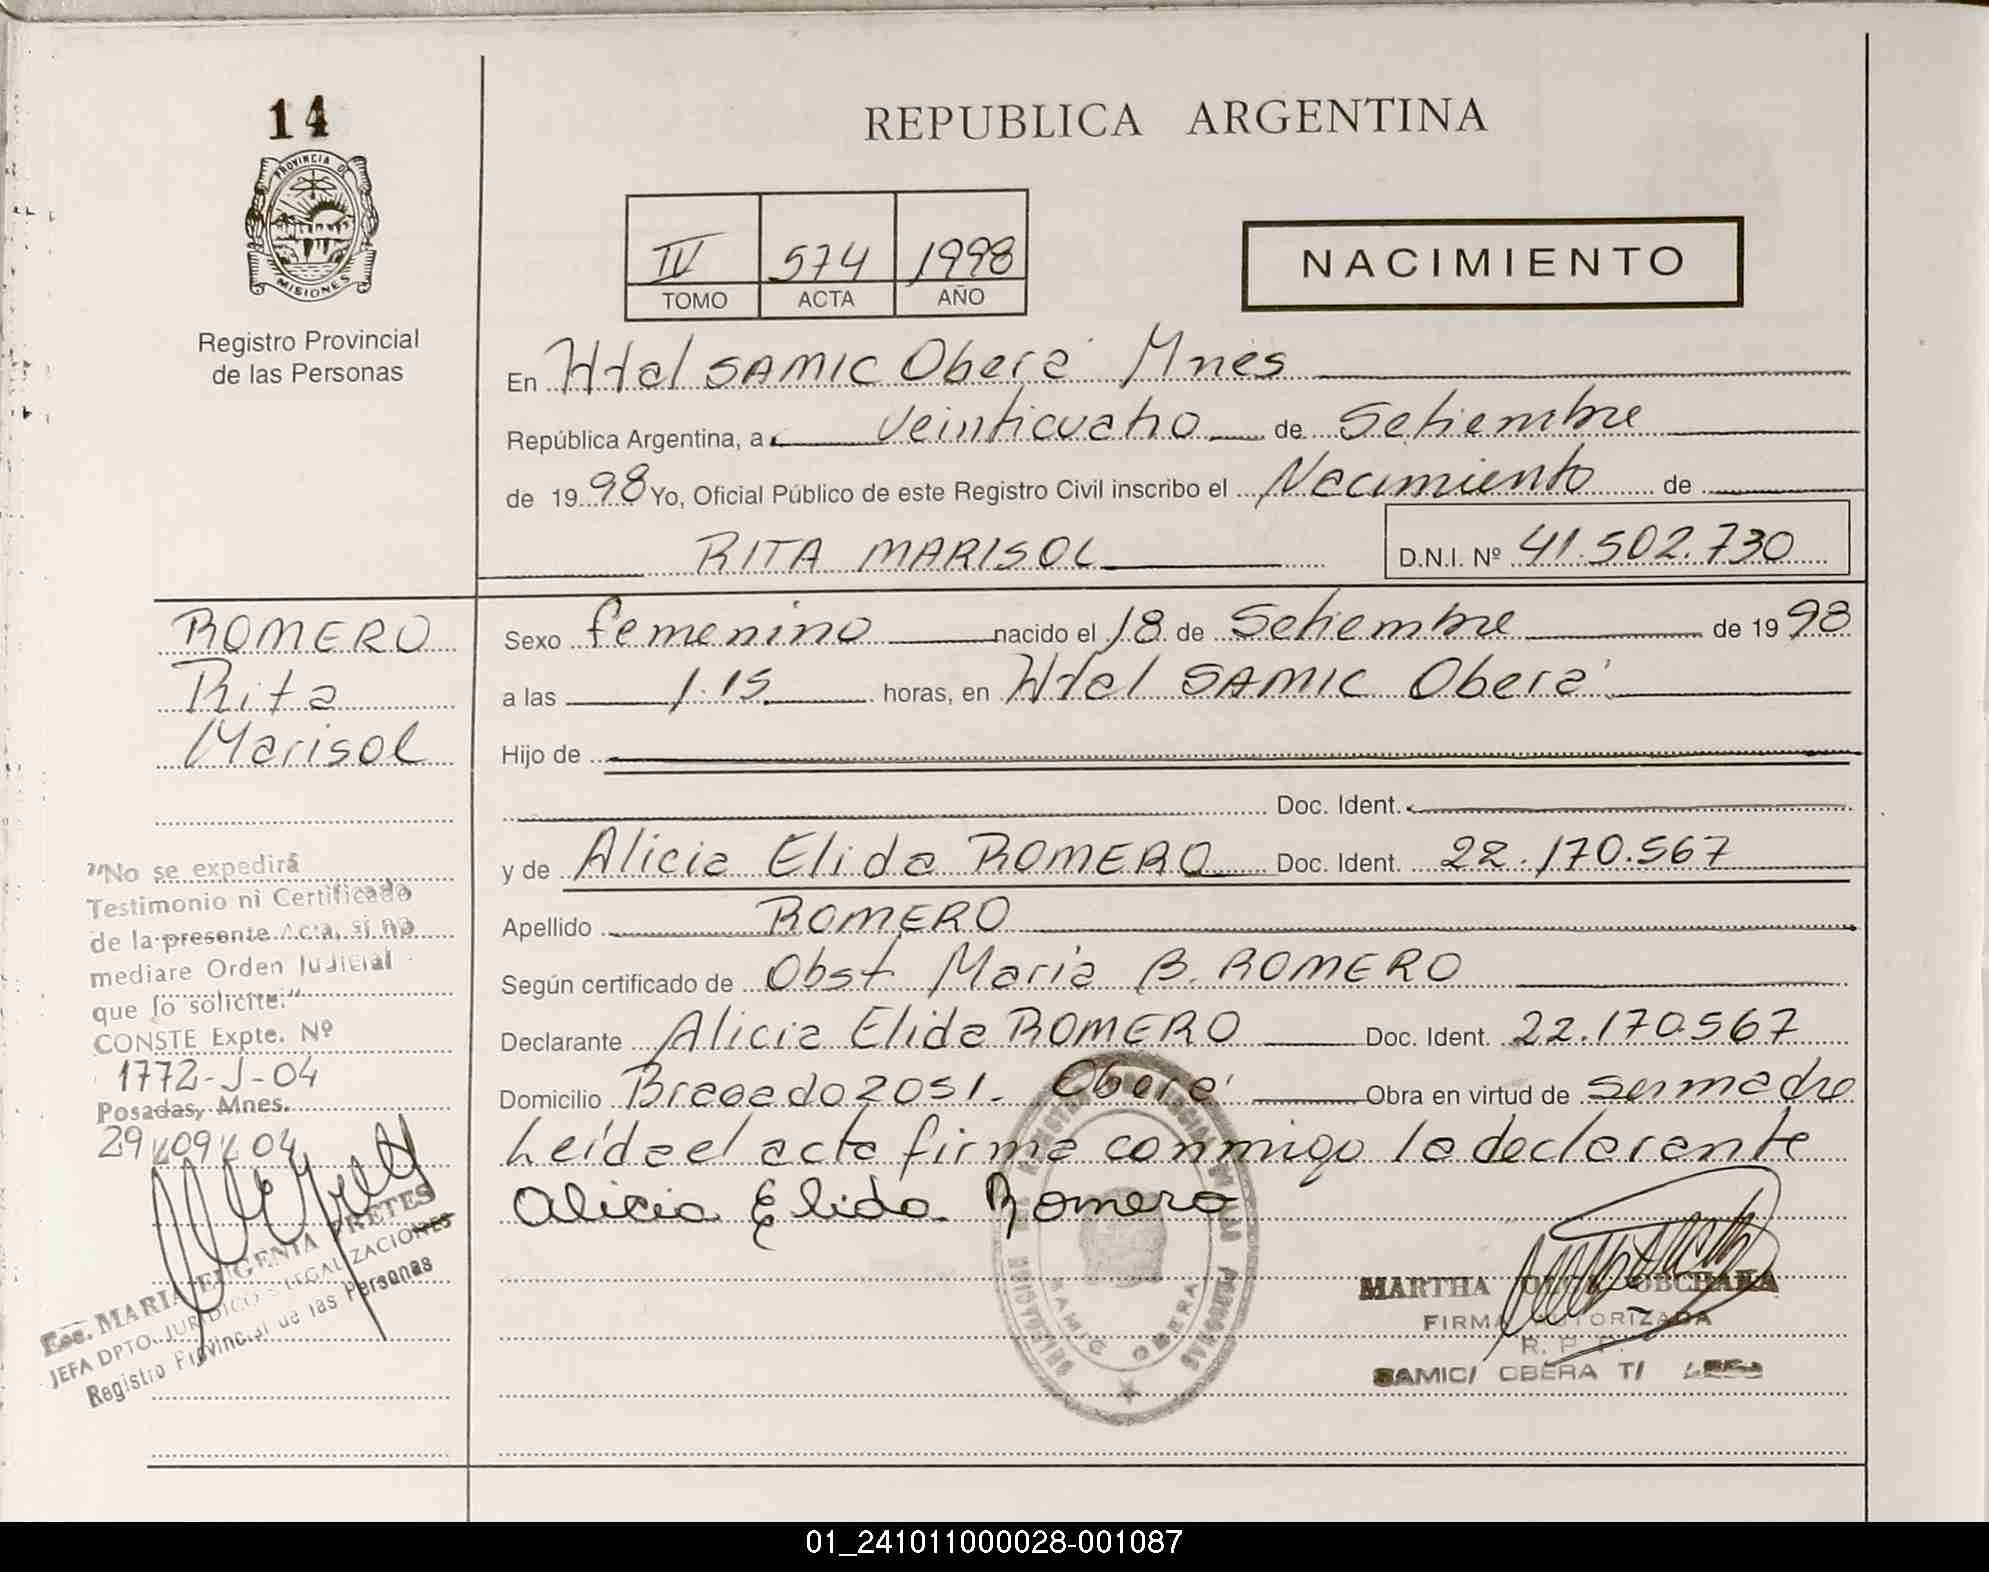 14
PROVINCIA DE
MISIONES
Registro Provincial
de las Personas
REPUBLICA ARGENTINA
IV 574 1998
TOMO ACTA AÑO
NACIMIENTO
En Htal SAMIC Oberá Mnes
República Argentina, a veinticuatro de Setiembre
de 1998 Yo, Oficial Público de este Registro Civil inscribo el Nacimiento de
RITA MARISOL D.N.I. Nº 41.502.730
ROMERO
Rita
Marisol
Sexo femenino nacido el 18 de Setiembre de 1998
a las 1.15 horas, en Htal SAMIC Oberá
Hijo de
Doc. Ident.
y de Alicia Elida ROMERO Doc. Ident. 22.170.567
Apellido ROMERO
Según certificado de Obst María B. ROMERO
Declarante Alicia Elida ROMERO Doc. Ident. 22.170.567
Domicilio Bragado 2051. Oberá Obra en virtud de ser madre
Leída el acta firma conmigo la declarante
Alicia Elida Romero
"No se expedirá
Testimonio ni Certificado
de la presente Acta, si no
mediare Orden Judicial
que lo solicite."
CONSTE Expte. Nº
1772-J-04
Posadas, Mnes.
29 09 04
Esc. MARIA EUGENIA PRETES
JEFA DPTO. JURIDICO - LEGALIZACIONES
Registro Provincial de las Personas
SAMIC OBERA
MARTHA
FIRMA AUTORIZADA
R. P. P.
SAMIC/ OBERA T/
01_241011000028-001087